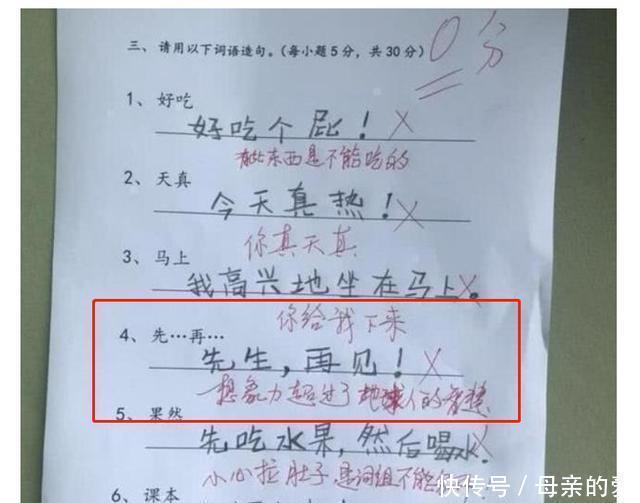 三、请用以下词语造句。(每小题5分,共30分)
0分
1、好吃
好吃个屁!
有些东西是不能吃的
2、天真
今天真热!
你真天真
3、马上
我高兴地坐在马上。
你给我下来
4、先…再…
先生,再见!
想象力超过了地球人的
5、果然
先吃水果,然后喝水.
小心拉肚子 是词组不能
6、课本
快传号/母亲的